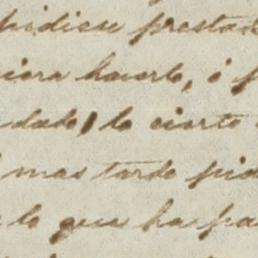 pidiese prestad
iera hacerlo, ó p
dado, lo cierto
mas tarde pid
lo que ha pa